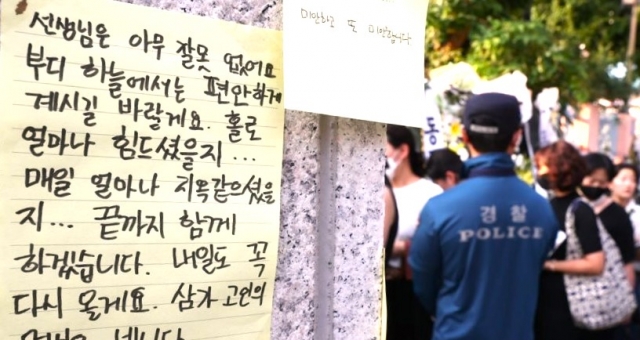 선생님은 아무 잘못 없어요
부디 하늘에서는 편안하게
계시길 바랄게요. 홀로
얼마나 힘드셨을지...
매일 얼마나 지옥같으셨을
지... 끝까지 함께
하겠습니다. 내일도 꼭
다시 올게요. 삼가 고인의
미안하고 또 미안합니다
경찰
POLICE
동